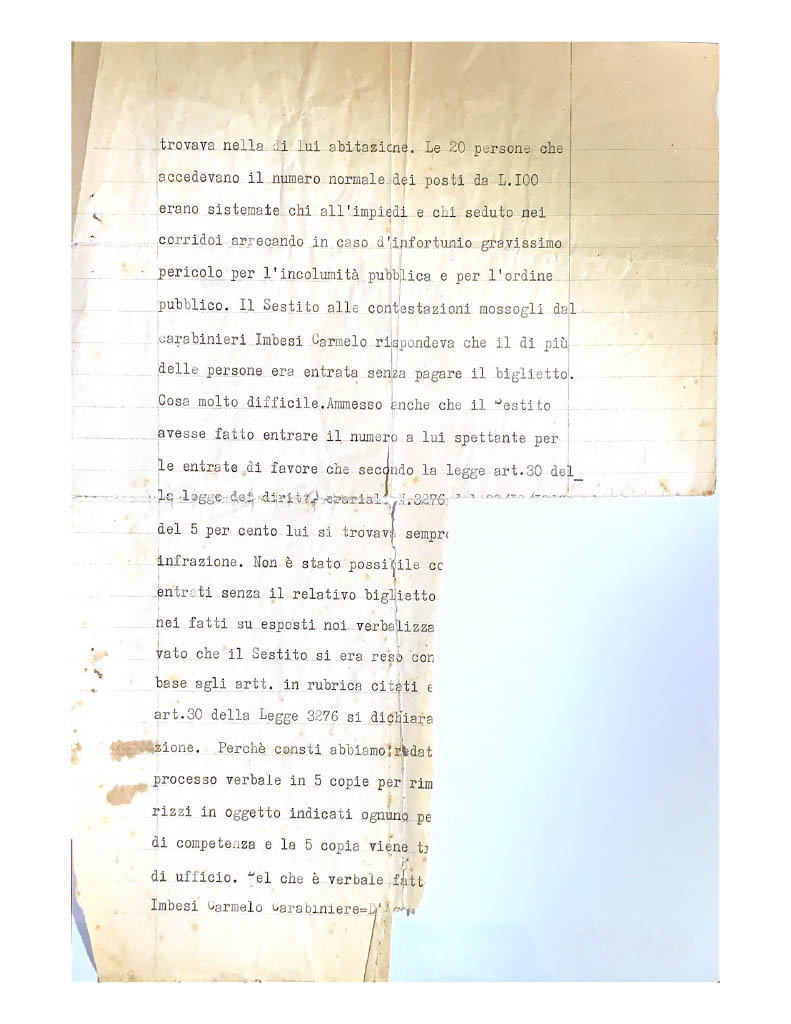 trovava nella di lui abitazione. Le 20 persone che
accedevano il numero normale dei posti da L.I00
erano sistemate chi all'impiedi e chi seduto nei
corridoi arrecando in caso d'infortunio gravissimo
pericolo per l'incolumità pubblica e per l'ordine
pubblico. Il Sestito alle contestazioni mossogli dal
carabinieri Imbesi Carmelo rispondeva che il di più
delle persone era entrata senza pagare il biglietto.
Cosa molto difficile.Ammesso anche che il Sestito
avesse fatto entrare il numero a lui spettante per
le entrate di favore che secondo la legge art.30 del_
la legge dei diritti erariali N.3276
del 5 per cento lui si trovava sempre
infrazione. Non è stato possibile
entrati senza il relativo biglietto
nei fatti su esposti noi verbalizza
vato che il Sestito si era reso con
base agli artt. in rubrica citati e
art.30 della Legge 3276 si dichiara
zione. Perchè consti abbiamo redat
processo verbale in 5 copie per rim
rizzi in oggetto indicati ognuno pe
di competenza e la 5 copia viene
di ufficio. Del che è verbale fatt
Imbesi Carmelo Carabiniere=